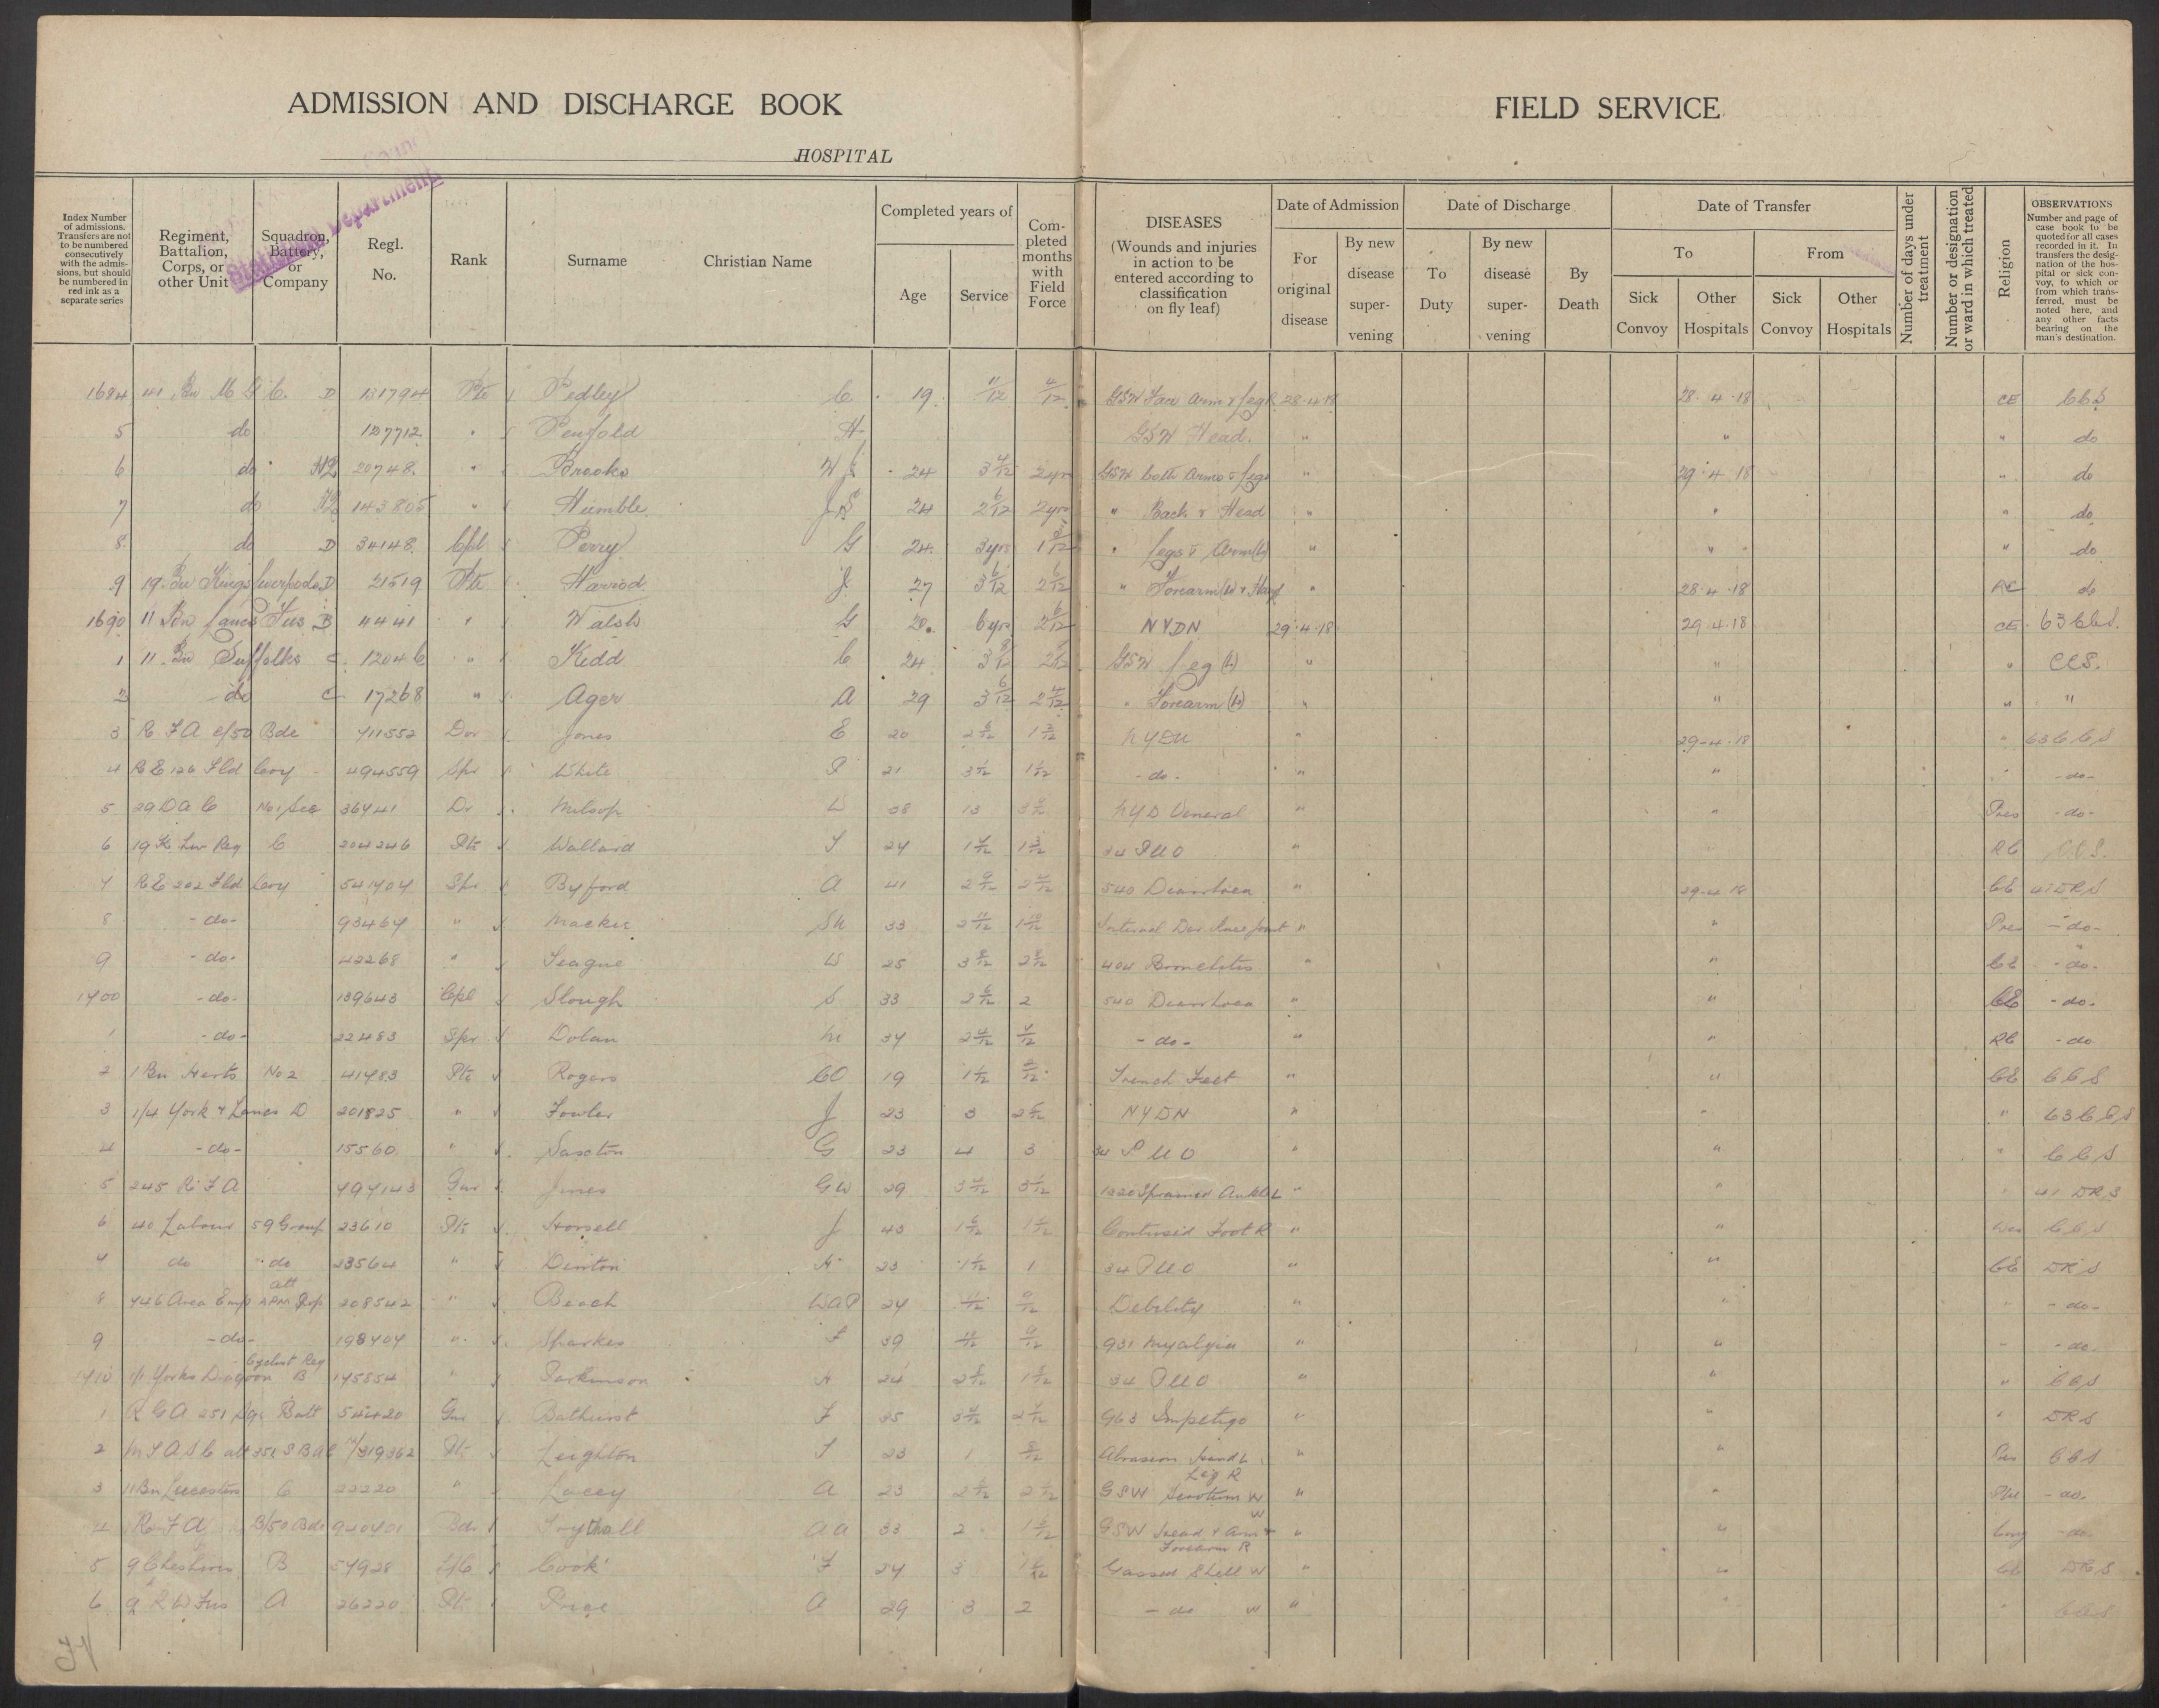 ADMISSION AND DISCHARGE BOOK
FIELD SERVICE
HOSPITAL
Statistical Department
Index Number of admissions. Transfers are not to be numbered consecutively with the admissions, but should be numbered in red ink as a separate series
Regiment, Battalion, Corps, or other Unit
Squadron, Battery, or Company
Regl. No.
Rank
Surname
Christian Name
Completed years of
Age
Service
Completed months with Field Force
DISEASES
(Wounds and injuries in action to be entered according to classification on fly leaf)
Date of Admission
For original disease
By new disease supervening
Date of Discharge
To Duty
By new disease supervening
By Death
Date of Transfer
To
From
Sick Convoy
Other Hospitals
Sick Convoy
Other Hospitals
Number of days under treatment
Number or designation or ward in which treated
Religion
OBSERVATIONS
Number and page of case book to be quoted for all cases recorded in it. In transfers the designation of the hospital or sick convoy, to which or from which transferred, must be noted here, and any other facts bearing on the man's destination.
1684 41 Bn M G C. D 131794 Pte Pedley C 19 11/12 4/12 GSW Face Arm & Leg R 28.4.18 28.4.18 CE CCS
5 do 127712 " Penfold H GSW Head. " " " do
6 do 20748 " Brooks 24 3 4/12 2yrs GSW both Arms & Legs " 29.4.18 " do
7 do 143805 " Humble 24 2 6/12 2yrs " Back & Head " " " do
8 do D 34148 Cpl Perry G 24 3yrs " Legs & Arm (L) " " " do
9 19 Bn Kings Liverpools D 21519 Pte Harrod J 27 3 6/12 2 6/12 " Forearm & Hand " 28.4.18 RC do
1690 11 Bn Lancs Fus B 4441 " Walsh G 20 6yrs 2 6/12 NYDN 29.4.18 29.4.18 CE 63 CCS.
1 11 Bn Suffolks C 12046 " Kidd C 24 GSW Leg (L) " " " CCS.
2 do C 17268 " Ager A 29 3 6/12 2 4/12 " Forearm (L) " " " "
3 R F A c/50 Bde 711552 Dvr Jones E 20 NYDN " 29-4-18 " 63 CCS
4 RE 126 Fld Coy 494559 Spr White P 21 -do- " " " -do-
5 29 D A C No 1 Sec 36741 Dr Milsop W 38 13 NYD Veneral " " Pres -do-
6 19 K Liv Reg C 204246 Pte Wallard T 24 34 PUO " " RC CCS.
7 RE 202 Fld Coy 541704 Spr Byford A 41 540 Diarrhoea " 29-4-18 CE 41 DRS
8 -do- 93467 " Mackie 33 Internal Der. Knee Joint " " Pres -do-
9 -do- 42268 " League W 25 404 Bronchitis " " CE -do-
1700 -do- 139643 Cpl Slough S 33 2 6/12 2 540 Diarrhoea " " CE -do-
1 -do- 22483 Spr Dolan M 37 -do- " " RC -do
2 1 Bn Herts No 2 41783 Pte Rogers CO 19 Trench Feet " " CE CCS
3 1/4 York & Lancs D 201825 " Fowler J 23 3 NYDN " " " 63 CCS
4 -do- 15560 " Saxton G 23 4 3 34 PUO " " " CCS
5 245 R F A 797143 Gnr Jones GW 29 1220 Sprained Ankle L " " " 41 DRS
6 40 Labour 59 Group 23610 Pte Horsell J 43 Contused Foot R " " Wes CCS
7 do do 23564 " Denton H 23 1 34 PUO " " CE DRS
8 746 Area Emp att APM 208542 " Beach WAP 24 Debility " " " -do-
9 -do- 198704 " Sparkes F 39 931 Myalgia " " " -do-
1710 1/1 Yorks Dragoon Cyclist Reg B 175854 " Parkinson A 24 34 PUO " " " CCS
1 R G A 251 Sge Batt 54420 Gnr Bathurst F 35 963 Impetigo " " " DRS
2 M T A S C att 352 S B A C M/319362 Pte Leighton T 23 1 Abrasion Hand L Leg R " " Pres CCS
3 11 Bn Leicesters C 22220 " Lacey A 23 GSW Scrotum W " " -do-
4 R F A B/50 Bde 940701 Bdr Frythall AA 33 2 GSW Head & Arm & Forearm R W " " Cong -do-
5 9 Cheshires B 57928 L/C Cook F 24 3 Gassed Shell W " " CE DRS
6 9 R W Fus A 26220 Pte Price A 29 3 2 -do W " " " CCS